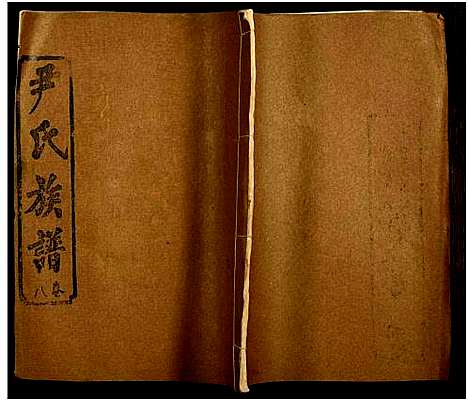 尹氏族譜
卷八